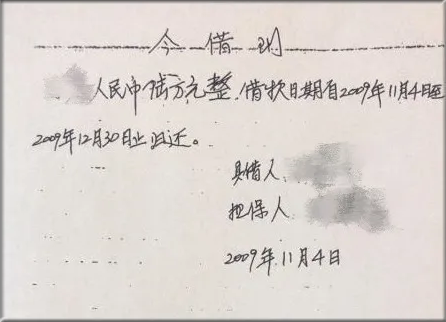 今借到
人民币陆万元整.借款日期自2009年11月4日至
2009年12月30日止归还。
具借人
担保人
2009年11月4日